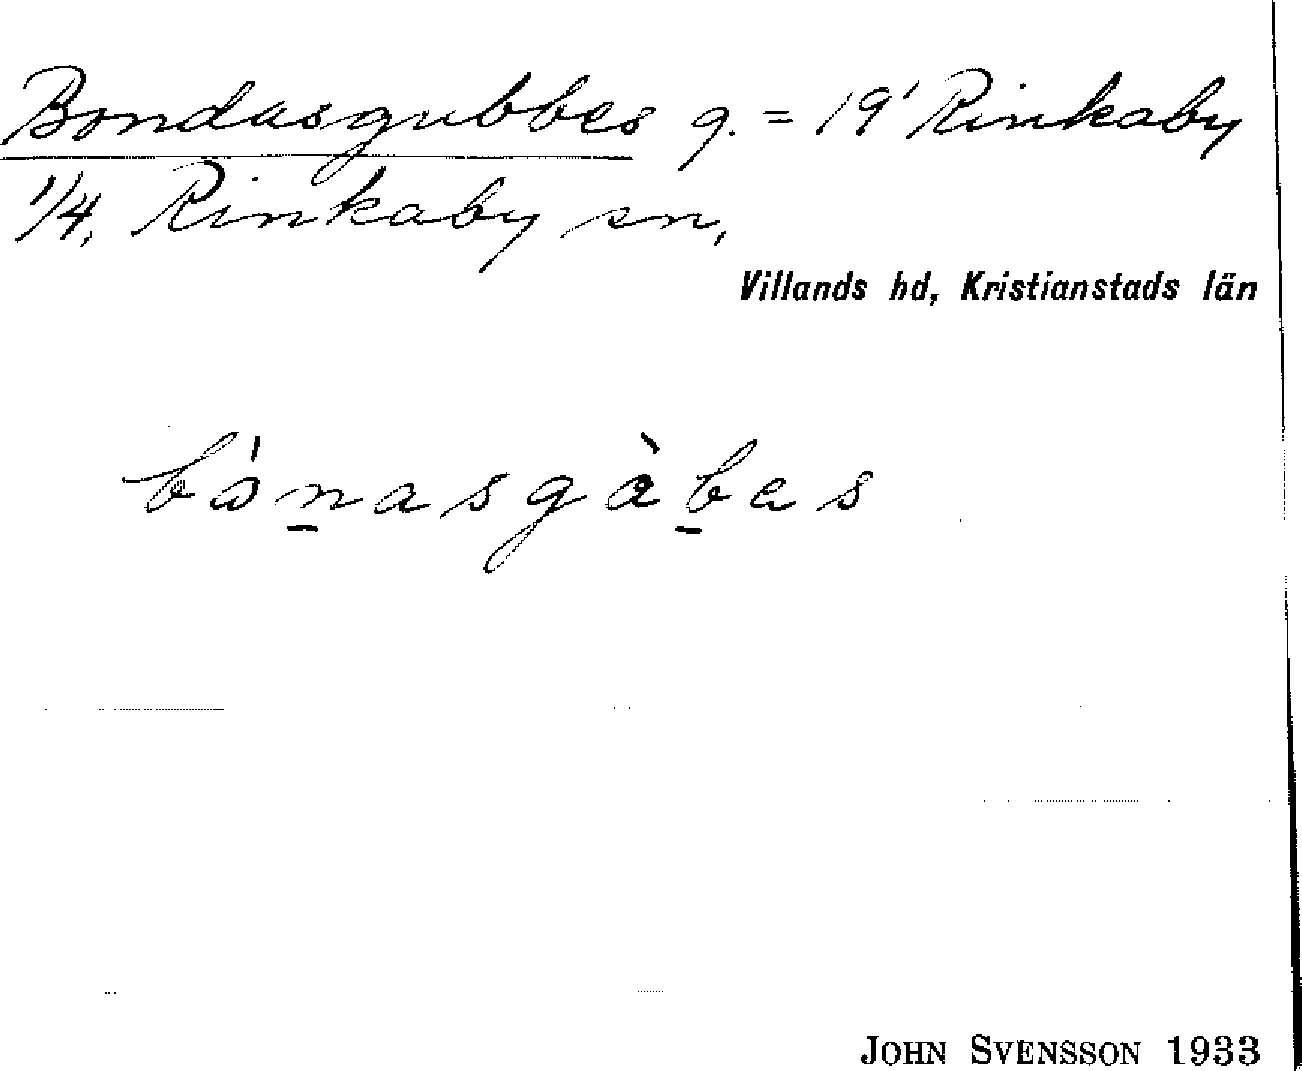 Bondasgubbes g. = 19' Rinkaby
1/4, Rinkaby sn,
Villands hd, Kristianstads län
bónasgàbes
JOHN SVENSSON 1933